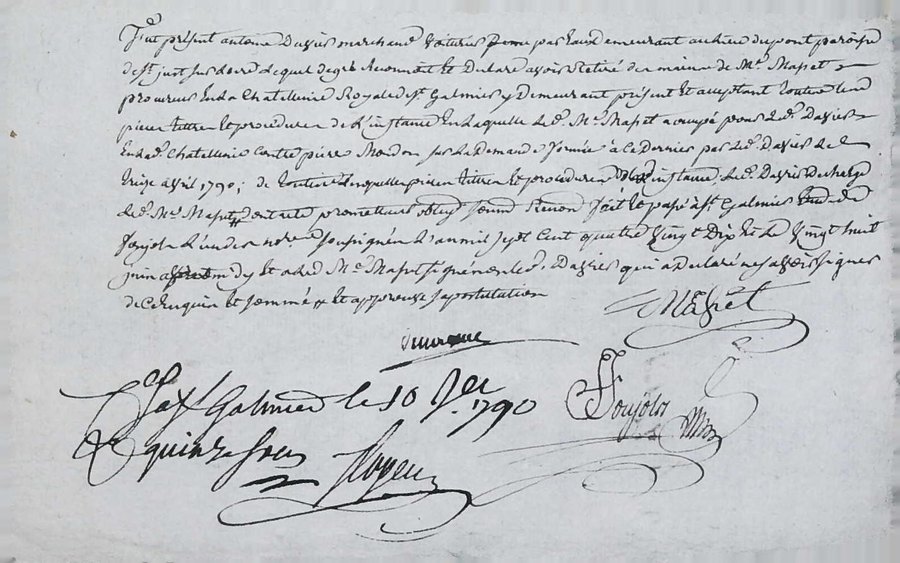 Fut présent antoine Dassier marchand voiturier par eau demeurant au lieu du pont paroisse
de st. just sur Loire Lequel de gré Reconnoit et Declare avoir Retiré des mains de Me. Maset
procureur En la Chatellenie Royale de st. Galmier y Demeurant présent et acceptant toutes les
pieces titres et procedures de L'instance En Laquelle led. Me. Maset a occupé pour Led. Dassier
En lad. Chatellenie Contre pierre Mondon sur la Demande formée a ce Dernier par led. Dassier le
treize avril 1790; de toutes lesquelles pieces titres et procedures instance, led. Dassier decharge
led. Me. Maset promettant oblig. soum. Renon. fait et passé a st. Galmier Etude de
Soujols L'un des nores. soussignés L'an mil sept Cent quatre Vingt Dix et le Vingt huit
juin et a led. Me. Maset signé non led. Dassier qui a declaré ne savoir signer
de Ce Enquis et sommé et approuvé la postulation
Maset
st. Galmier le 10 1790
quinze sous
Soujols